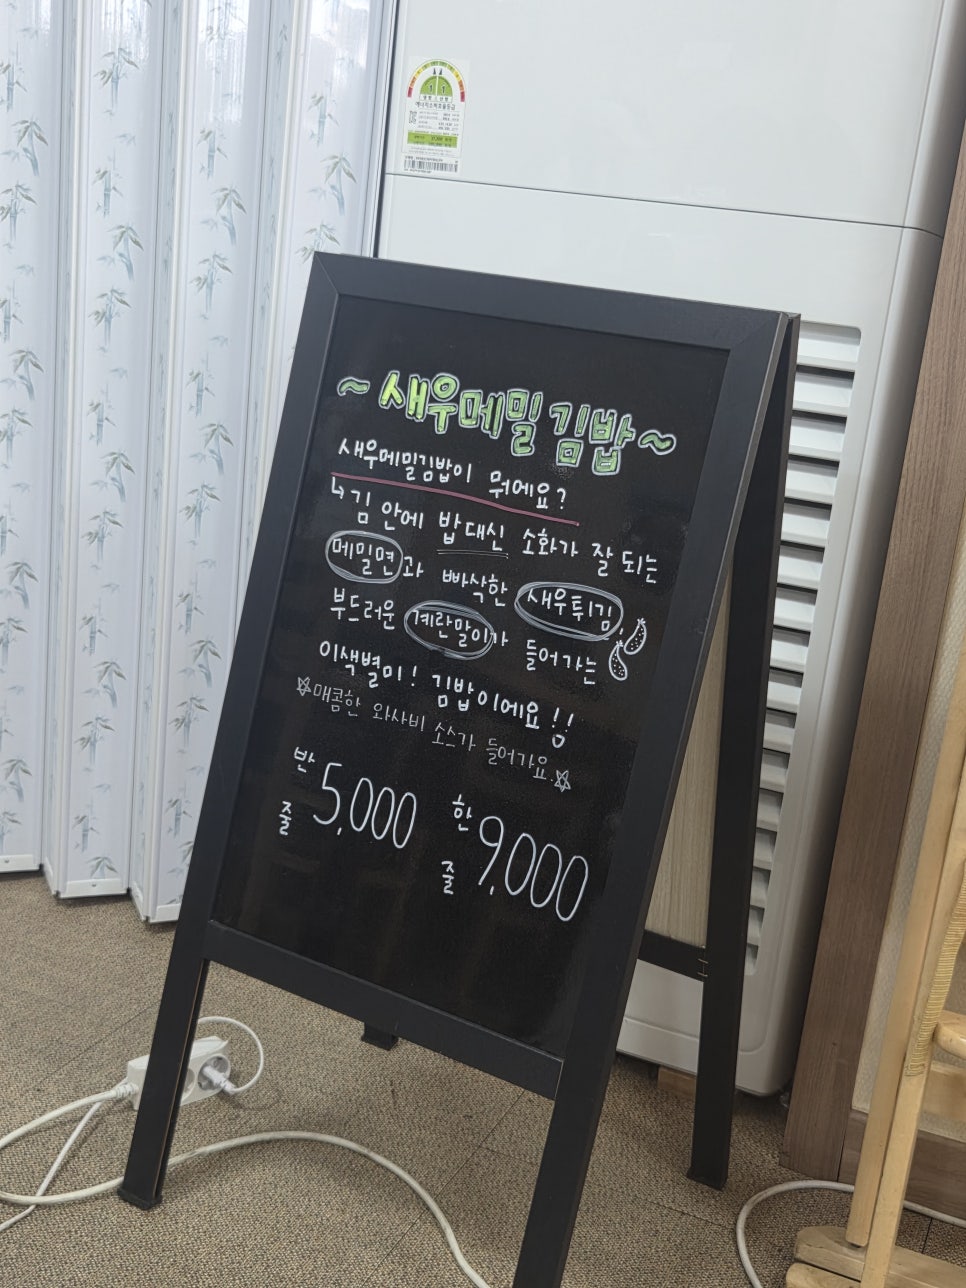 에너지소비효율등급
~새우메밀김밥~
새우메밀김밥이 뭐에요?
↳김 안에 밥대신 소화가 잘 되는
메밀면과 빠삭한 새우튀김,
부드러운 계란말이가 들어가는
이색별미! 김밥이에요!!
☆매콤한 와사비 소스가 들어가요.☆
반줄 5,000 한줄 9,000